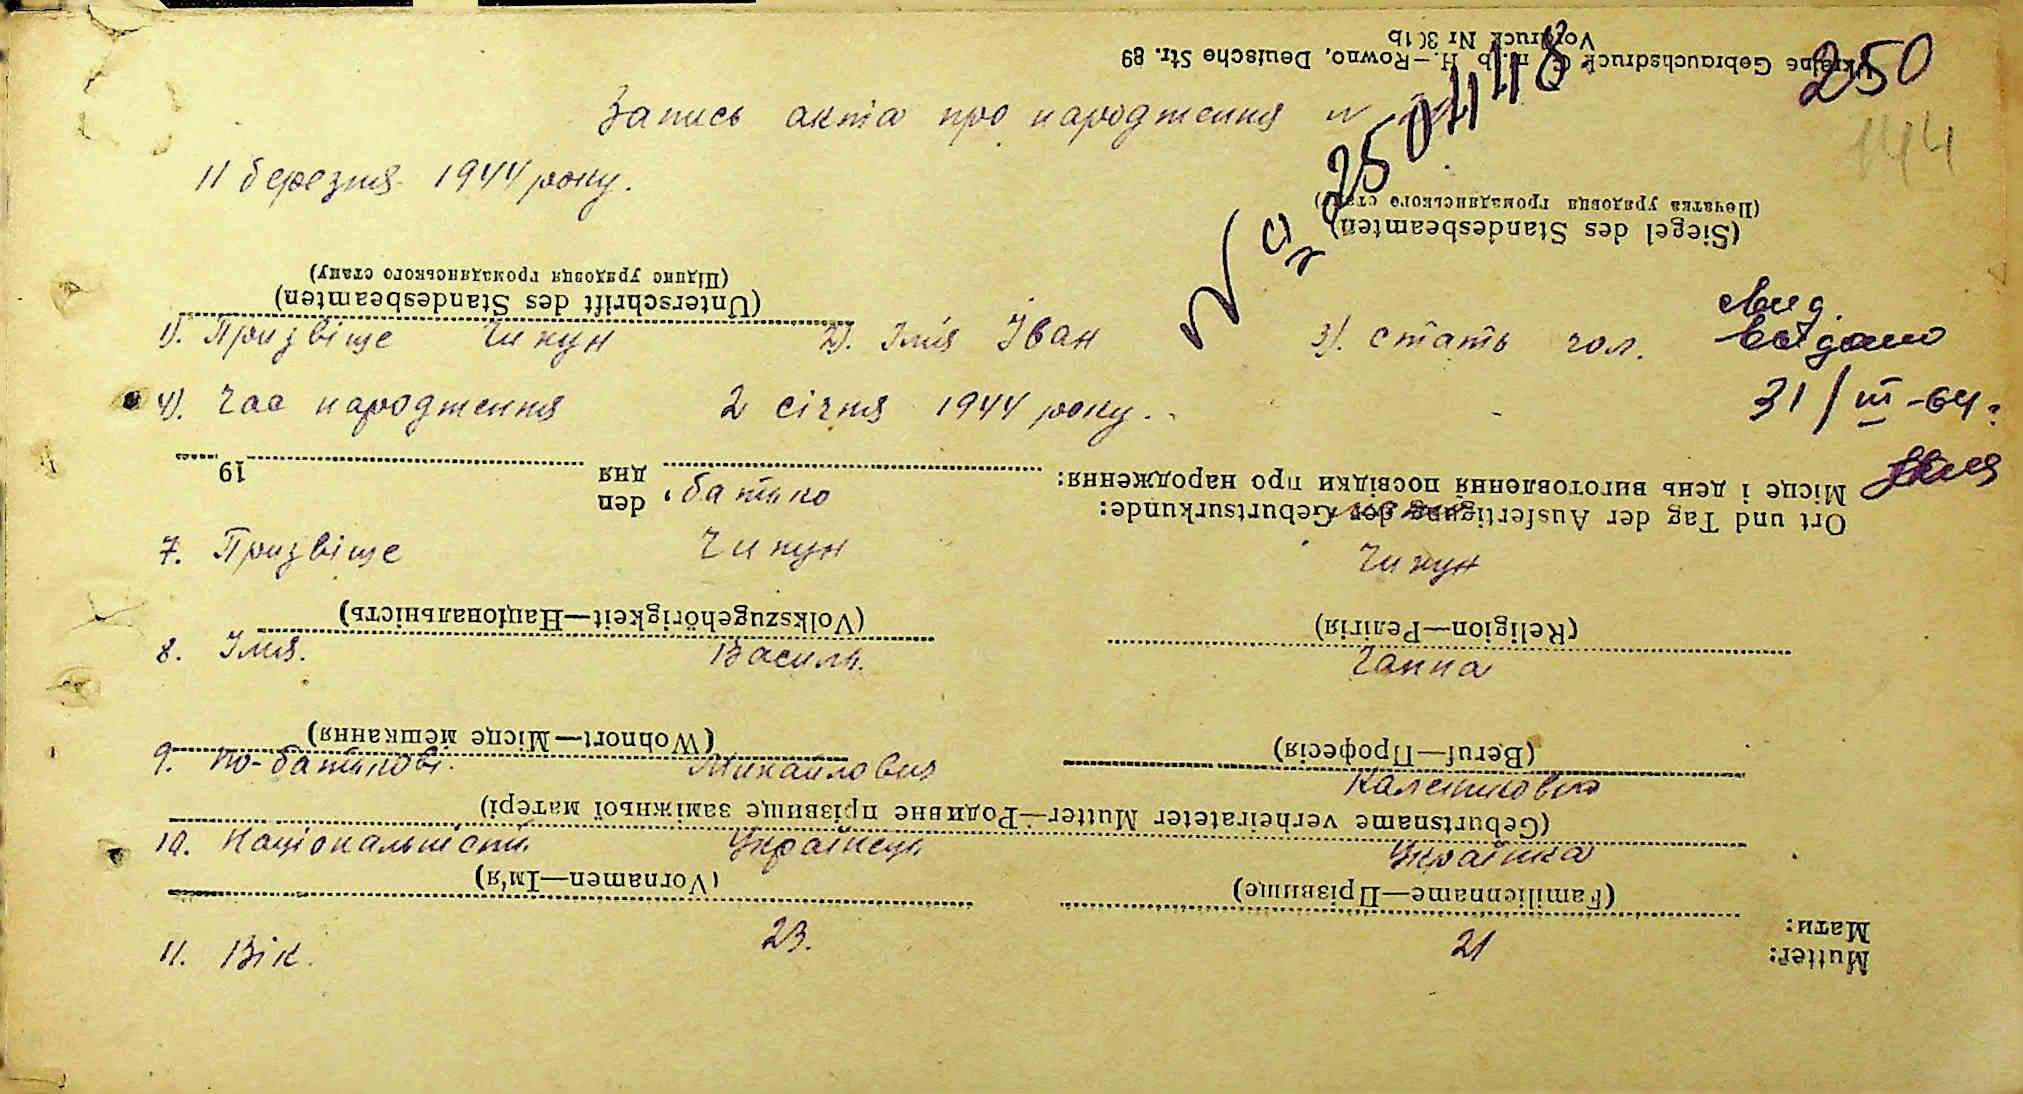 Ukraine Gebrauchsdruck G. m. b. H.—Rowno, Deutsche Str. 89
Vordruck Nr 301b
250
144
Запись акта про народження №
11 березня 1944 року.
(Печатка урядовця громадянського стану)
(Siegel des Standesbeamten)
(Підпис урядовця громадянського стану)
(Unterschrift des Standesbeamten)
1). Призвіще Чикун 2). Імя Іван 3). стать чол.
видано
4). Час народження 2 січня 1944 року.
31/III-64.
19 дня Місце і день виготовлення посвідки про народження:
den Ort und Tag der Ausfertigung der Geburtsurkunde:
батько
7. Призвіще Чикун Чикун
(Volkszugehörigkeit—Національність) (Religion—Релігія)
8. Імя. Василь. Ганна
(Wohnort—Місце мешкання) (Beruf—Професія)
9. по-батькові. Михайлович
(Geburtsname verheirateter Mutter—Родивне прізвище заміжньої матері)
10. Національність Українець Українка
(Vornamen—Ім'я) (Familienname—Прізвище)
Мати:
11. Вік. 23. 21
Mutter: